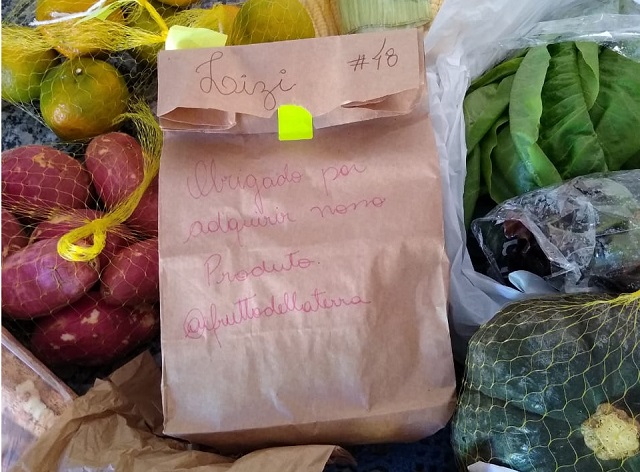 Lizi #18
Obrigado por
adquirir nosso
Produto.
@ifruttodellaterra